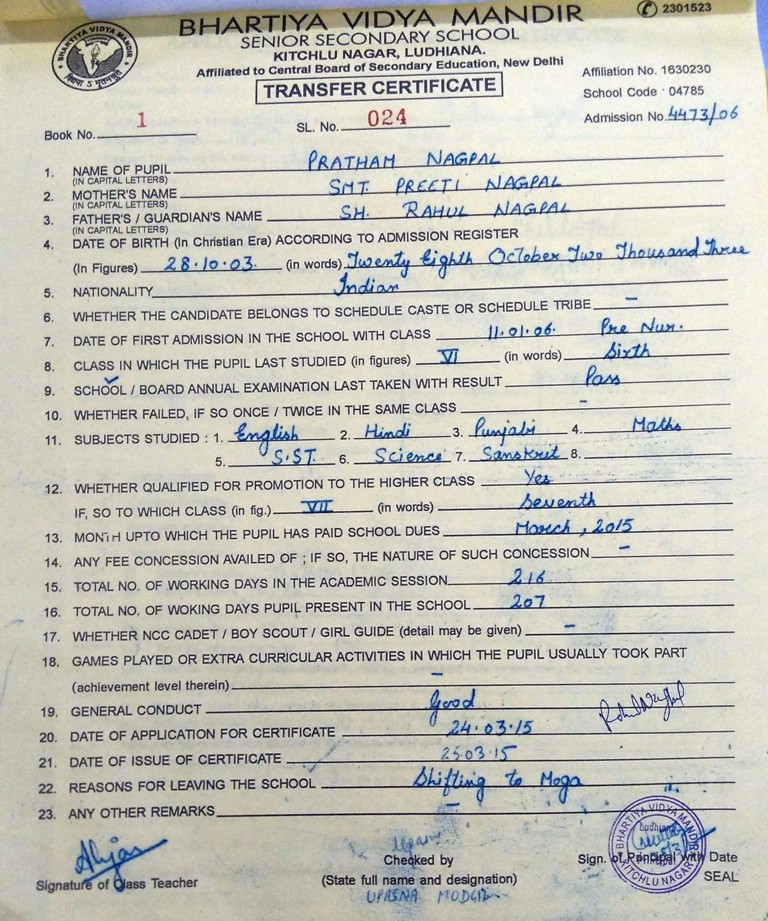 BHARTIYA VIDYA MANDIR
2301523
SENIOR SECONDARY SCHOOL
KITCHLU NAGAR, LUDHIANA.
Affiliated to Central Board of Secondary Education, New Delhi
TRANSFER CERTIFICATE
Affiliation No. 1630230
School Code 04785
Admission No. 4473/06
Book No. 1 SL. No. 024
1. NAME OF PUPIL PRATHAM NAGPAL
(IN CAPITAL LETTERS)
2. MOTHER'S NAME SMT. PREETI NAGPAL
(IN CAPITAL LETTERS)
3. FATHER'S / GUARDIAN'S NAME SH. RAHUL NAGPAL
(IN CAPITAL LETTERS)
4. DATE OF BIRTH (In Christian Era) ACCORDING TO ADMISSION REGISTER
(In Figures) 28.10.03. (in words) Twenty Eighth October Two Thousand Three
5. NATIONALITY Indian
6. WHETHER THE CANDIDATE BELONGS TO SCHEDULE CASTE OR SCHEDULE TRIBE –
7. DATE OF FIRST ADMISSION IN THE SCHOOL WITH CLASS 11.01.06. Pre Nur.
8. CLASS IN WHICH THE PUPIL LAST STUDIED (in figures) VI (in words) Sixth
9. SCHOOL / BOARD ANNUAL EXAMINATION LAST TAKEN WITH RESULT Pass
10. WHETHER FAILED, IF SO ONCE / TWICE IN THE SAME CLASS –
11. SUBJECTS STUDIED : 1. English 2. Hindi 3. Punjabi 4. Maths
5. S.ST. 6. Science 7. Sanskrit 8.
12. WHETHER QUALIFIED FOR PROMOTION TO THE HIGHER CLASS Yes
IF, SO TO WHICH CLASS (in fig.) VII (in words) Seventh
13. MONTH UPTO WHICH THE PUPIL HAS PAID SCHOOL DUES March, 2015
14. ANY FEE CONCESSION AVAILED OF ; IF SO, THE NATURE OF SUCH CONCESSION –
15. TOTAL NO. OF WORKING DAYS IN THE ACADEMIC SESSION 216
16. TOTAL NO. OF WOKING DAYS PUPIL PRESENT IN THE SCHOOL 207
17. WHETHER NCC CADET / BOY SCOUT / GIRL GUIDE (detail may be given) –
18. GAMES PLAYED OR EXTRA CURRICULAR ACTIVITIES IN WHICH THE PUPIL USUALLY TOOK PART
(achievement level therein) –
19. GENERAL CONDUCT Good
20. DATE OF APPLICATION FOR CERTIFICATE 24.03.15
21. DATE OF ISSUE OF CERTIFICATE 25.03.15
22. REASONS FOR LEAVING THE SCHOOL Shifting to Moga
23. ANY OTHER REMARKS –
Signature of Class Teacher
Checked by
(State full name and designation)
UPASNA MODGIL
BHARTIYA VIDYA MANDIR
Ludhiana
KITCHLU NAGAR
Sign. of Principal with Date
SEAL